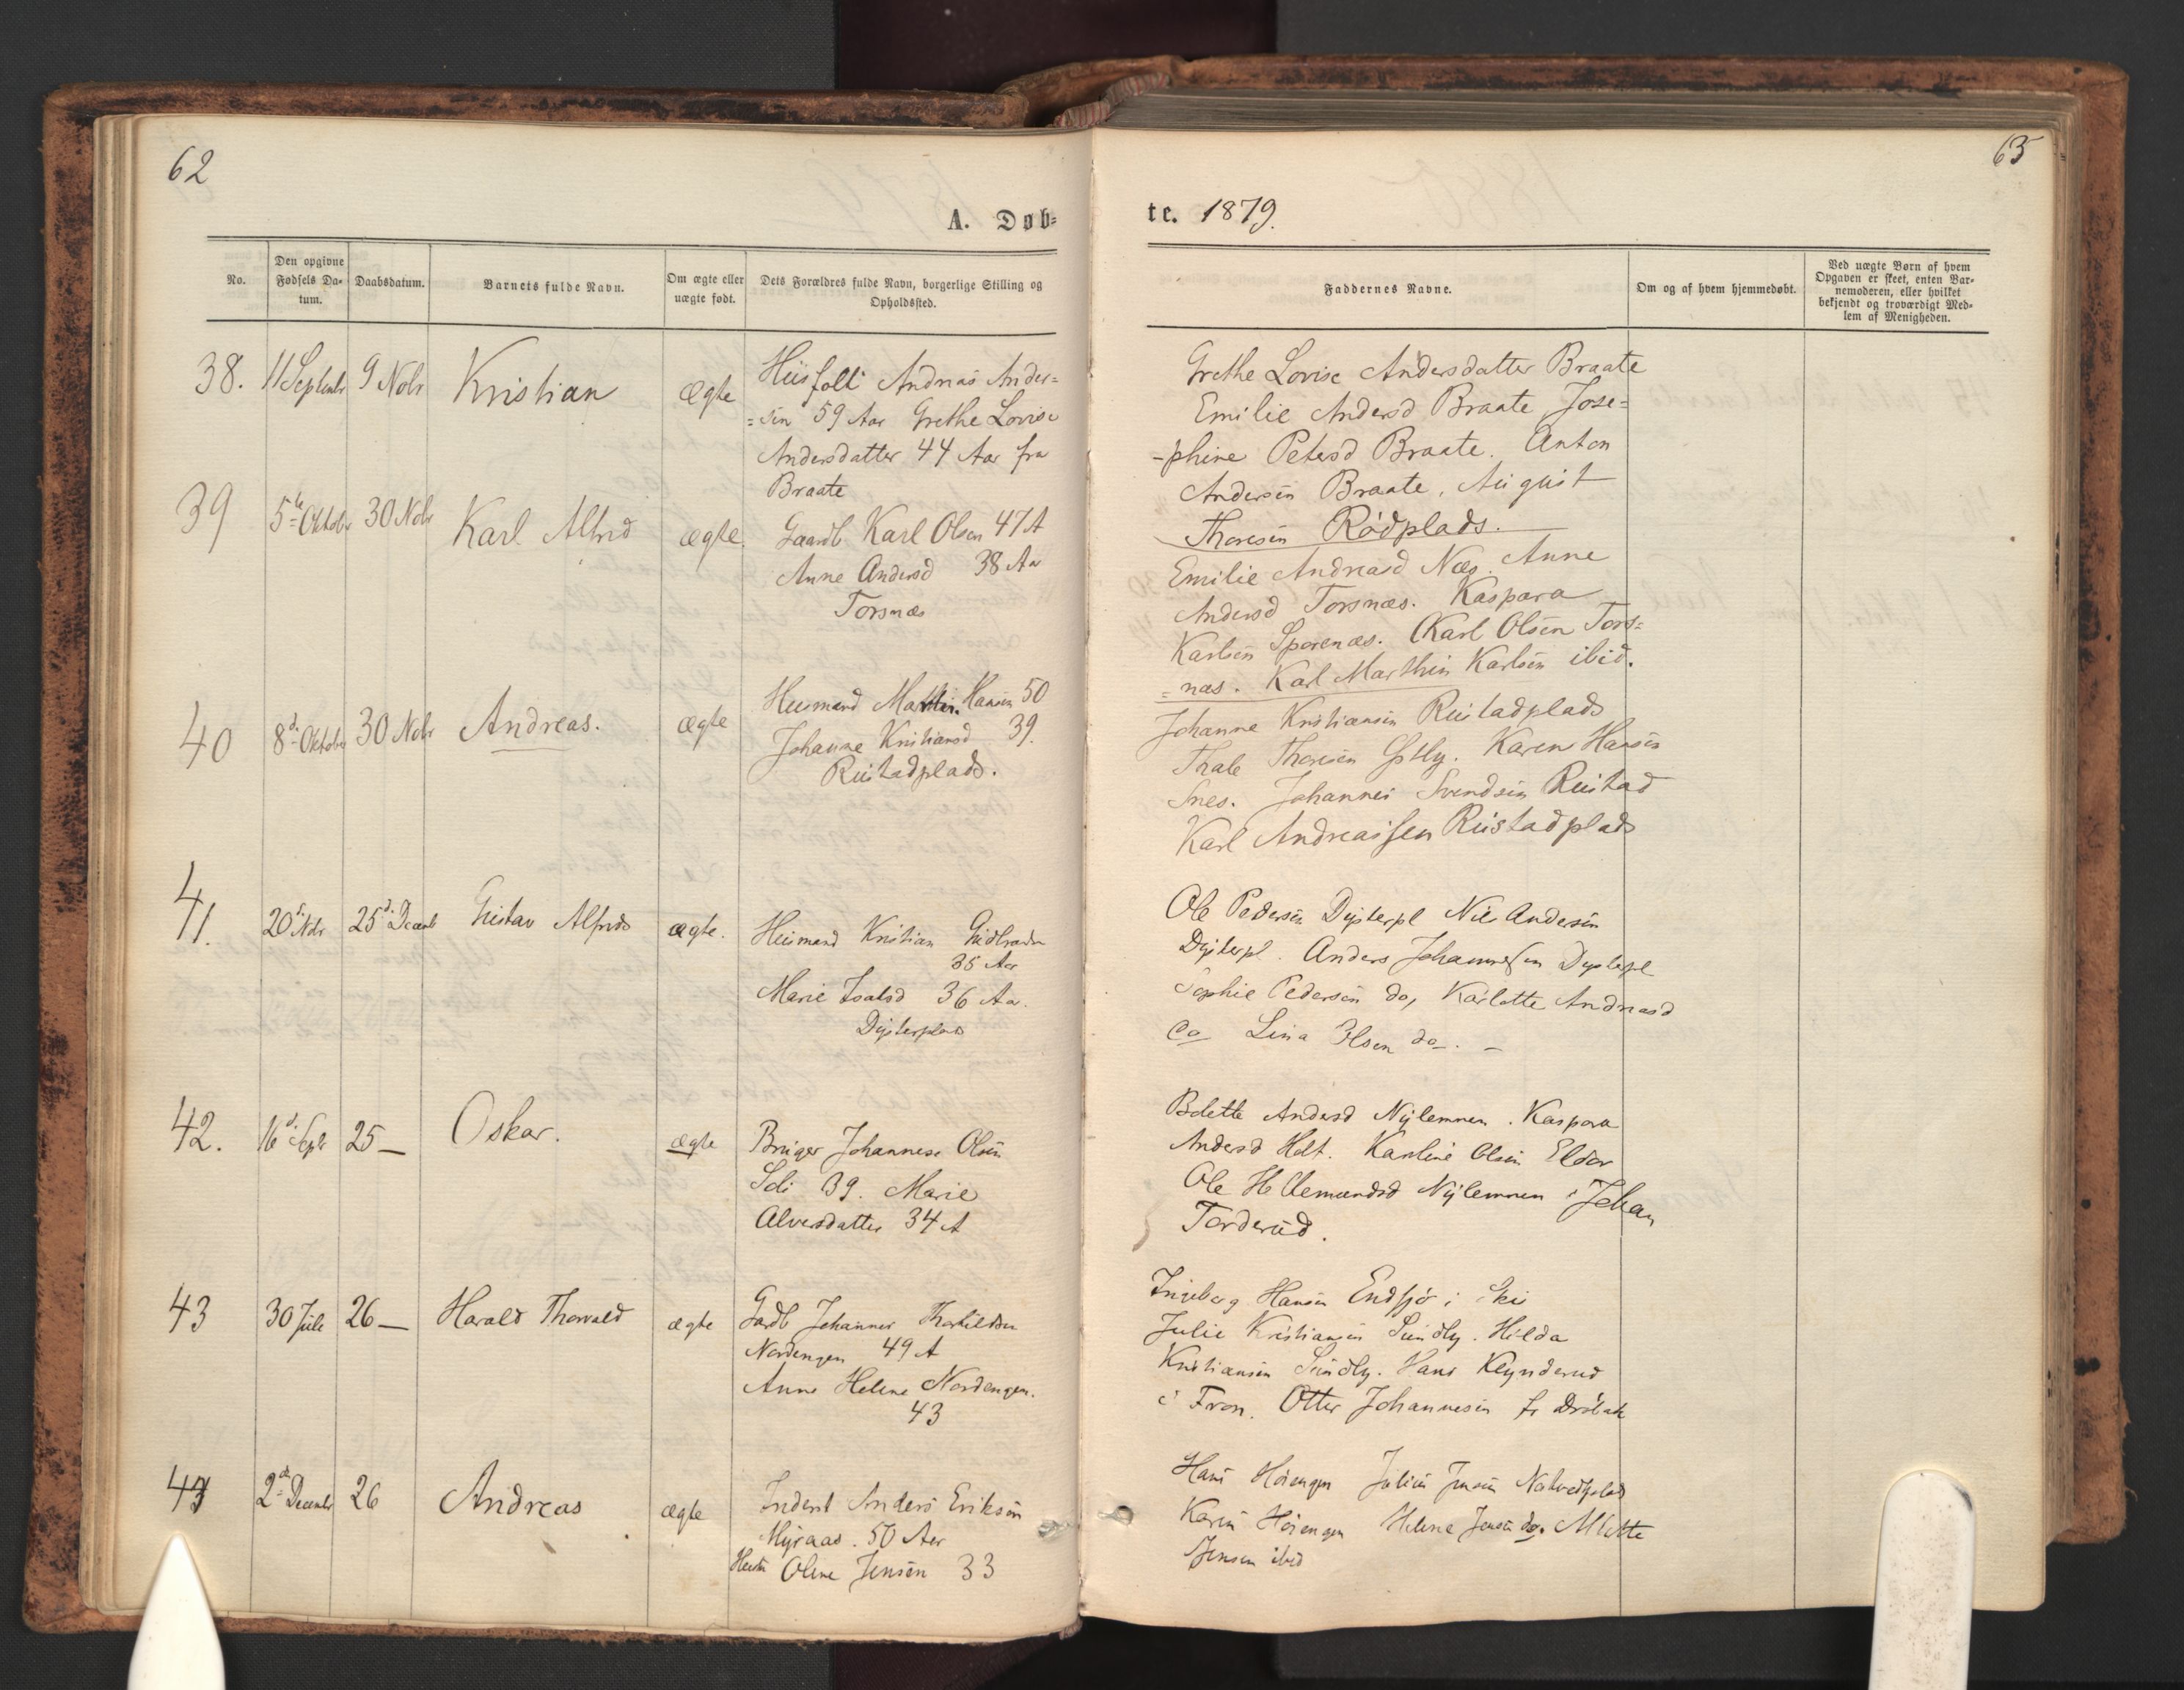 62
A. Døb-
No.
Den opgivne Fødsels Da-tum.
Daabsdatum.
Barnets fulde Navn.
Om ægte eller uægte født.
Dets Forældres fulde Navn, borgerlige Stilling og Opholdssted.
38. 11 Septembr 9 Nobr Kristian ægte Huusfolk Andreas Ander=
=sen 59 Aar Grethe Lovise
Andersdatter 44 Aar fra
Braate
39 5te Oktobr 30 Nobr Karl Alfred ægte Gaardb Karl Olsen 47 A
Anne Andersd 38 Aa
Torsnæs
40 8de Oktober 30 Nobr Andreas. ægte Husmand Marthin Hansen 50
Johanne Kristiansd 39.
Rustadplads.
41. 20de Nobr 25de Decemb Gustav Alfred ægte. Husmand Kristian
35 Aar
Marie 36 Aar.
Dysterplads
42. 16de Septbr 25 — Oskar. ægte Bruger Johannes Olsen
39. Marie
Alversdatter 34 A
43 30 Juli 26 — Harald Thorvald ægte Gardb Johannes
Nordengen 49 A
Anne Helene Nordengen.
43
2de Decembr 26 Andreas ægte Inderst Anders Eriksen
Myraas. 50 Aar
Hustru Oline Jensen 33
63
te. 1879.
Faddernes Navne.
Om og af hvem hjemmedøbt.
Ved uægte Børn af hvem
Opgaven er skeet, enten Bar-
nemoderen, eller hvilket
bekjendt og troværdigt Med-
lem af Menigheden.
Grethe Lovise Andersdatter Braate
Emilie Andersd Braate Jose=
-phine Petersd Braate. Anton
Andersen Braate, August
Thoresen Rødplads.
Emilie Andreasd Næs. Anne
Andersd Torsnæs. Kaspara
Karlsen Sporenæs. Karl Olsen Tors=
=næs. Karl Marthin Karlsen ibid.
Johanne Kristiansen Rustadplads
Thale Thoresen Karen Hansen
Snes. Johannes Svendsen Rustad
Karl Andreassen Rustadplads
Ole Pedersen Dysterpl Nils Andersen
Dysterpl. Anders Johannessen Dysterpl
Sophie Pedersen do, Karlotte Andreasd
do Lina Olsen do. —
Bolette Andersd Nylemmen. Kaspara
Andersd Holt. Karoline Olsen Eldor
Ole Nylemmen Johan
Torderud.
Ingeborg Hansen Endsjø i Ski
Julie Kristiansen Sundby. Hilda
Kristiansen Sundby. Hans
i Fron. Otter Johannesen fr Drøbak
Hans Høiengen Julius Jensen
Karen Høiengen Helene Jensen do. Mlette
Jensen ibid